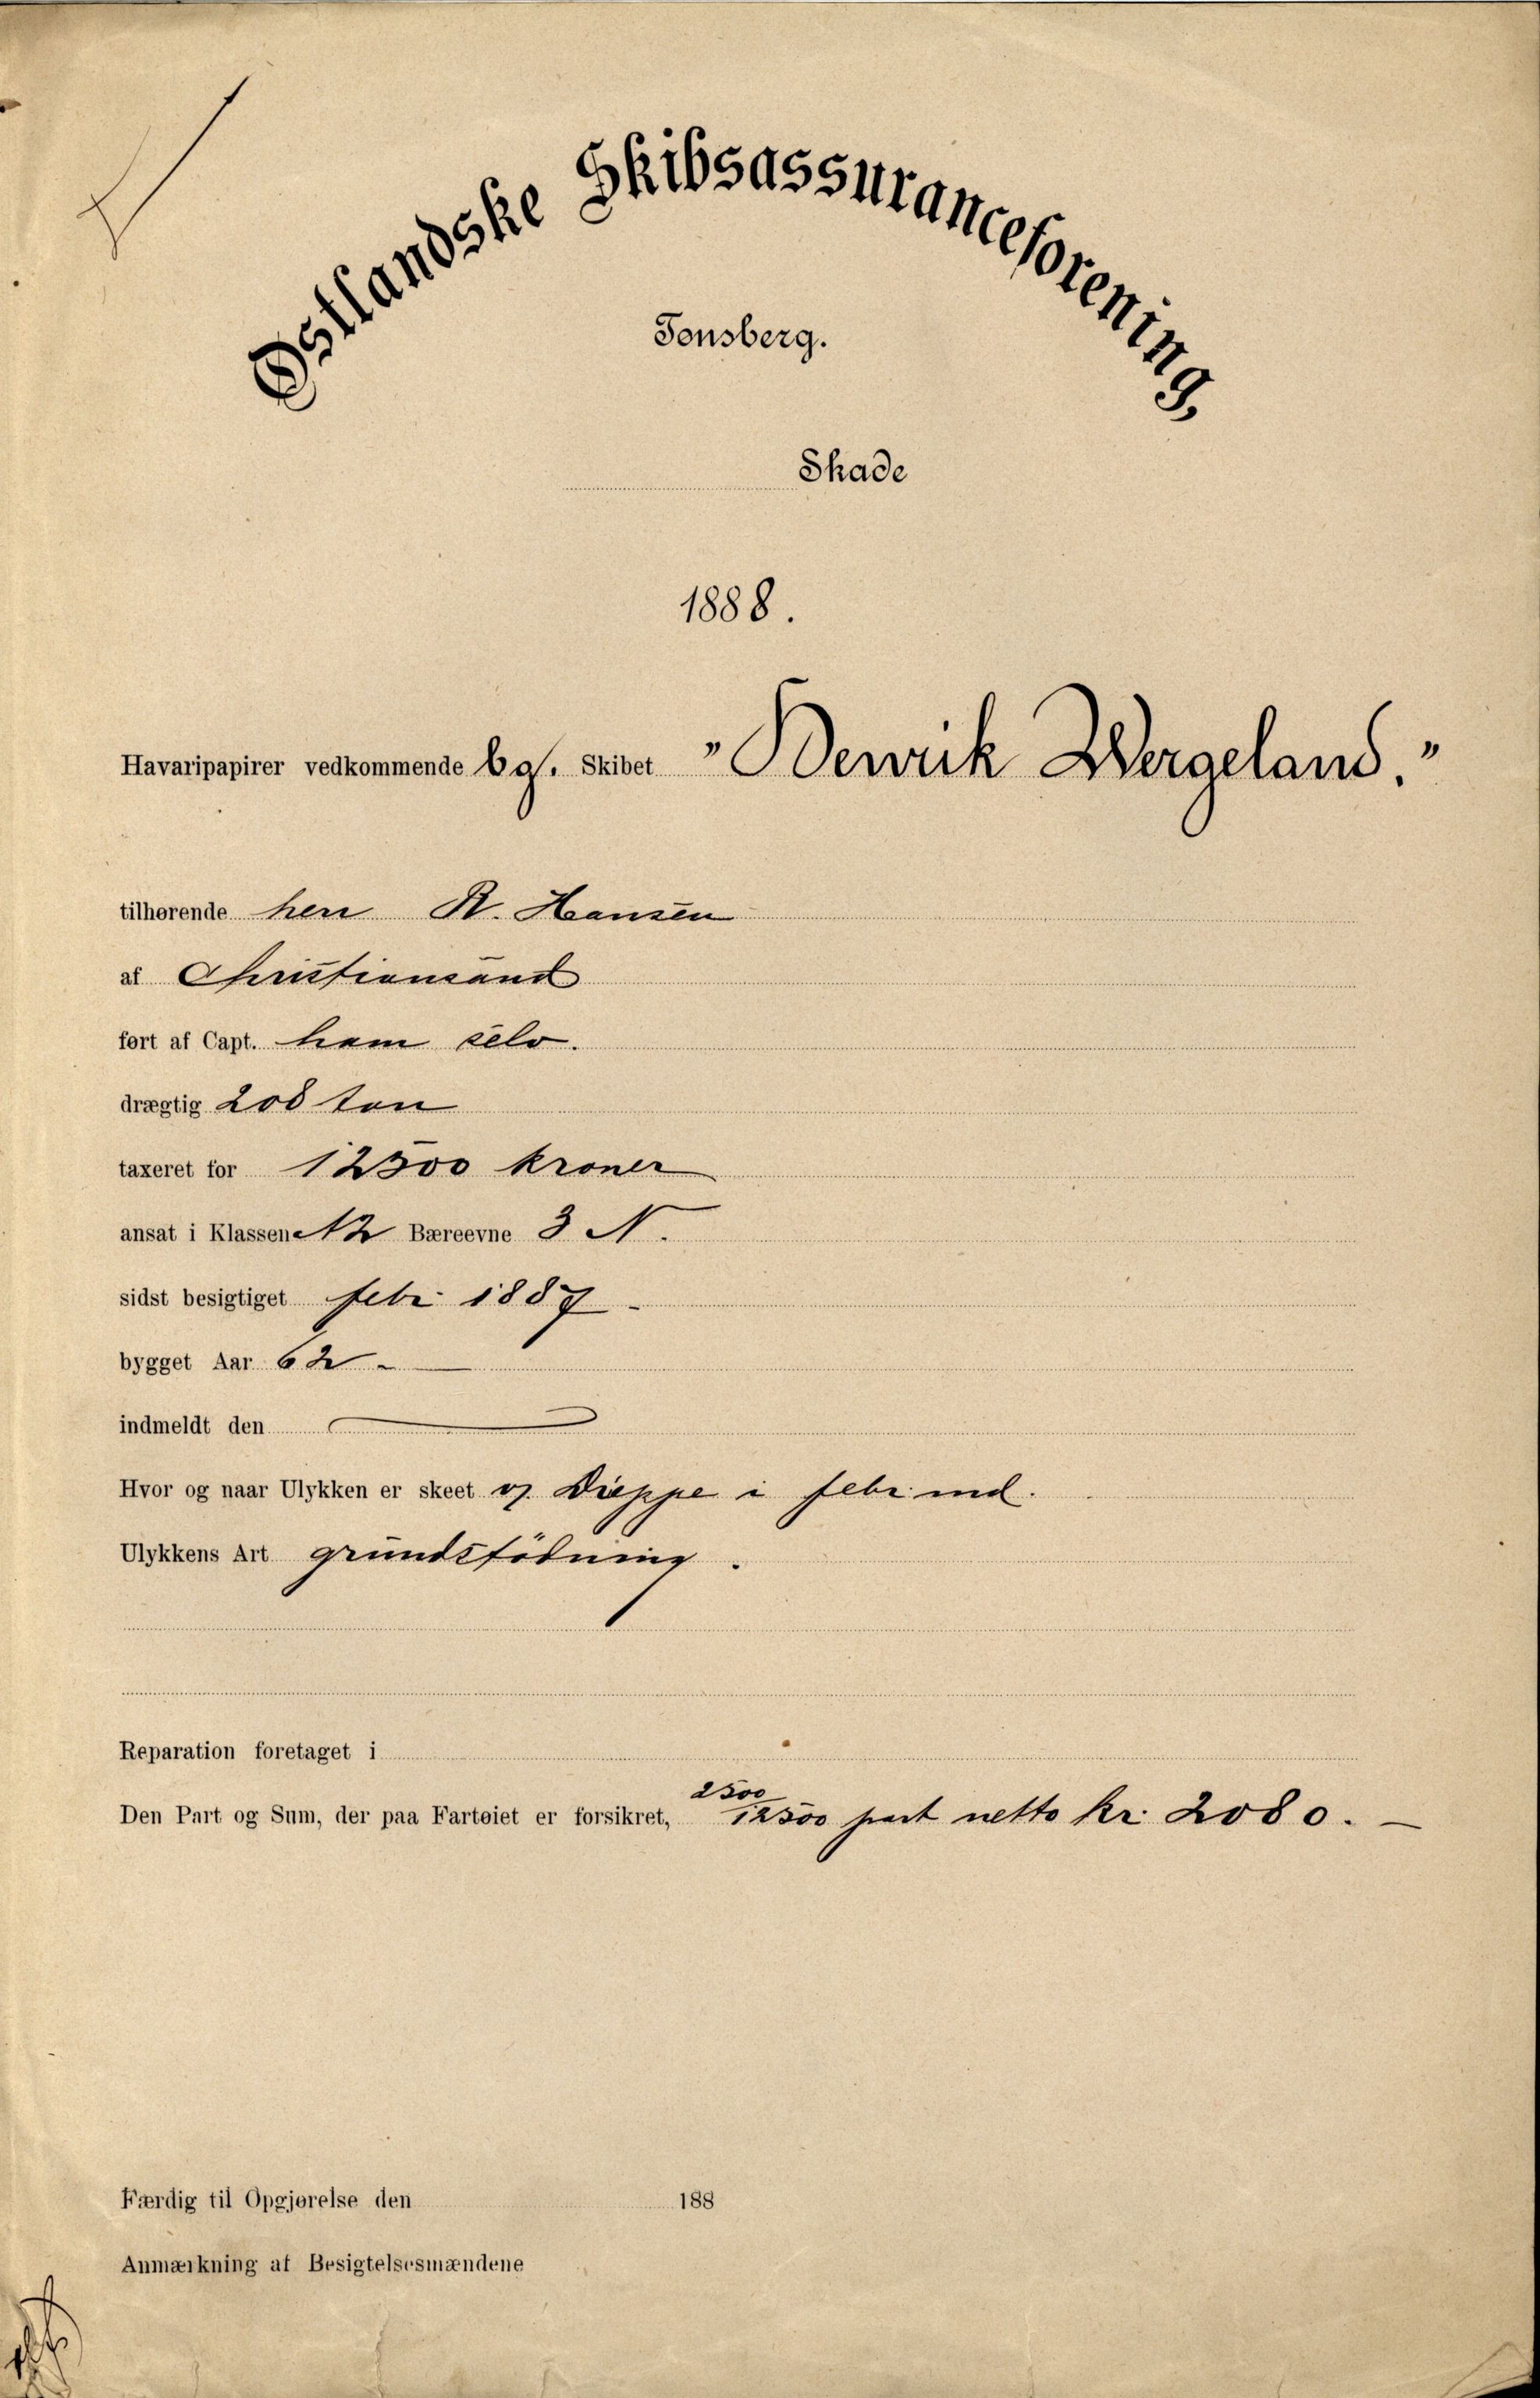 Østlandske Skibsassuranceforening,
Tønsberg.
Skade
1888.
Havaripapirer vedkommende bg. Skibet „Henrik Wergeland."
tilhørende herr R. Hansen
af Christiansand
ført af Capt. ham selv.
drægtig 208 ton
taxeret for 12500 kroner
ansat i Klassen A2 Bæreevne 3 N.
sidst besigtiget febr 1887 -
bygget Aar 62 -
indmeldt den
Hvor og naar Ulykken er skeet v. Dieppe i febr. md.
Ulykkens Art grundstödning.
Reparation foretaget i
Den Part og Sum, der paa Fartøiet er forsikret, 2500/12500 part netto kr. 2080. —
Færdig til Opgjørelse den 188
Anmærkning af Besigtelsesmændene